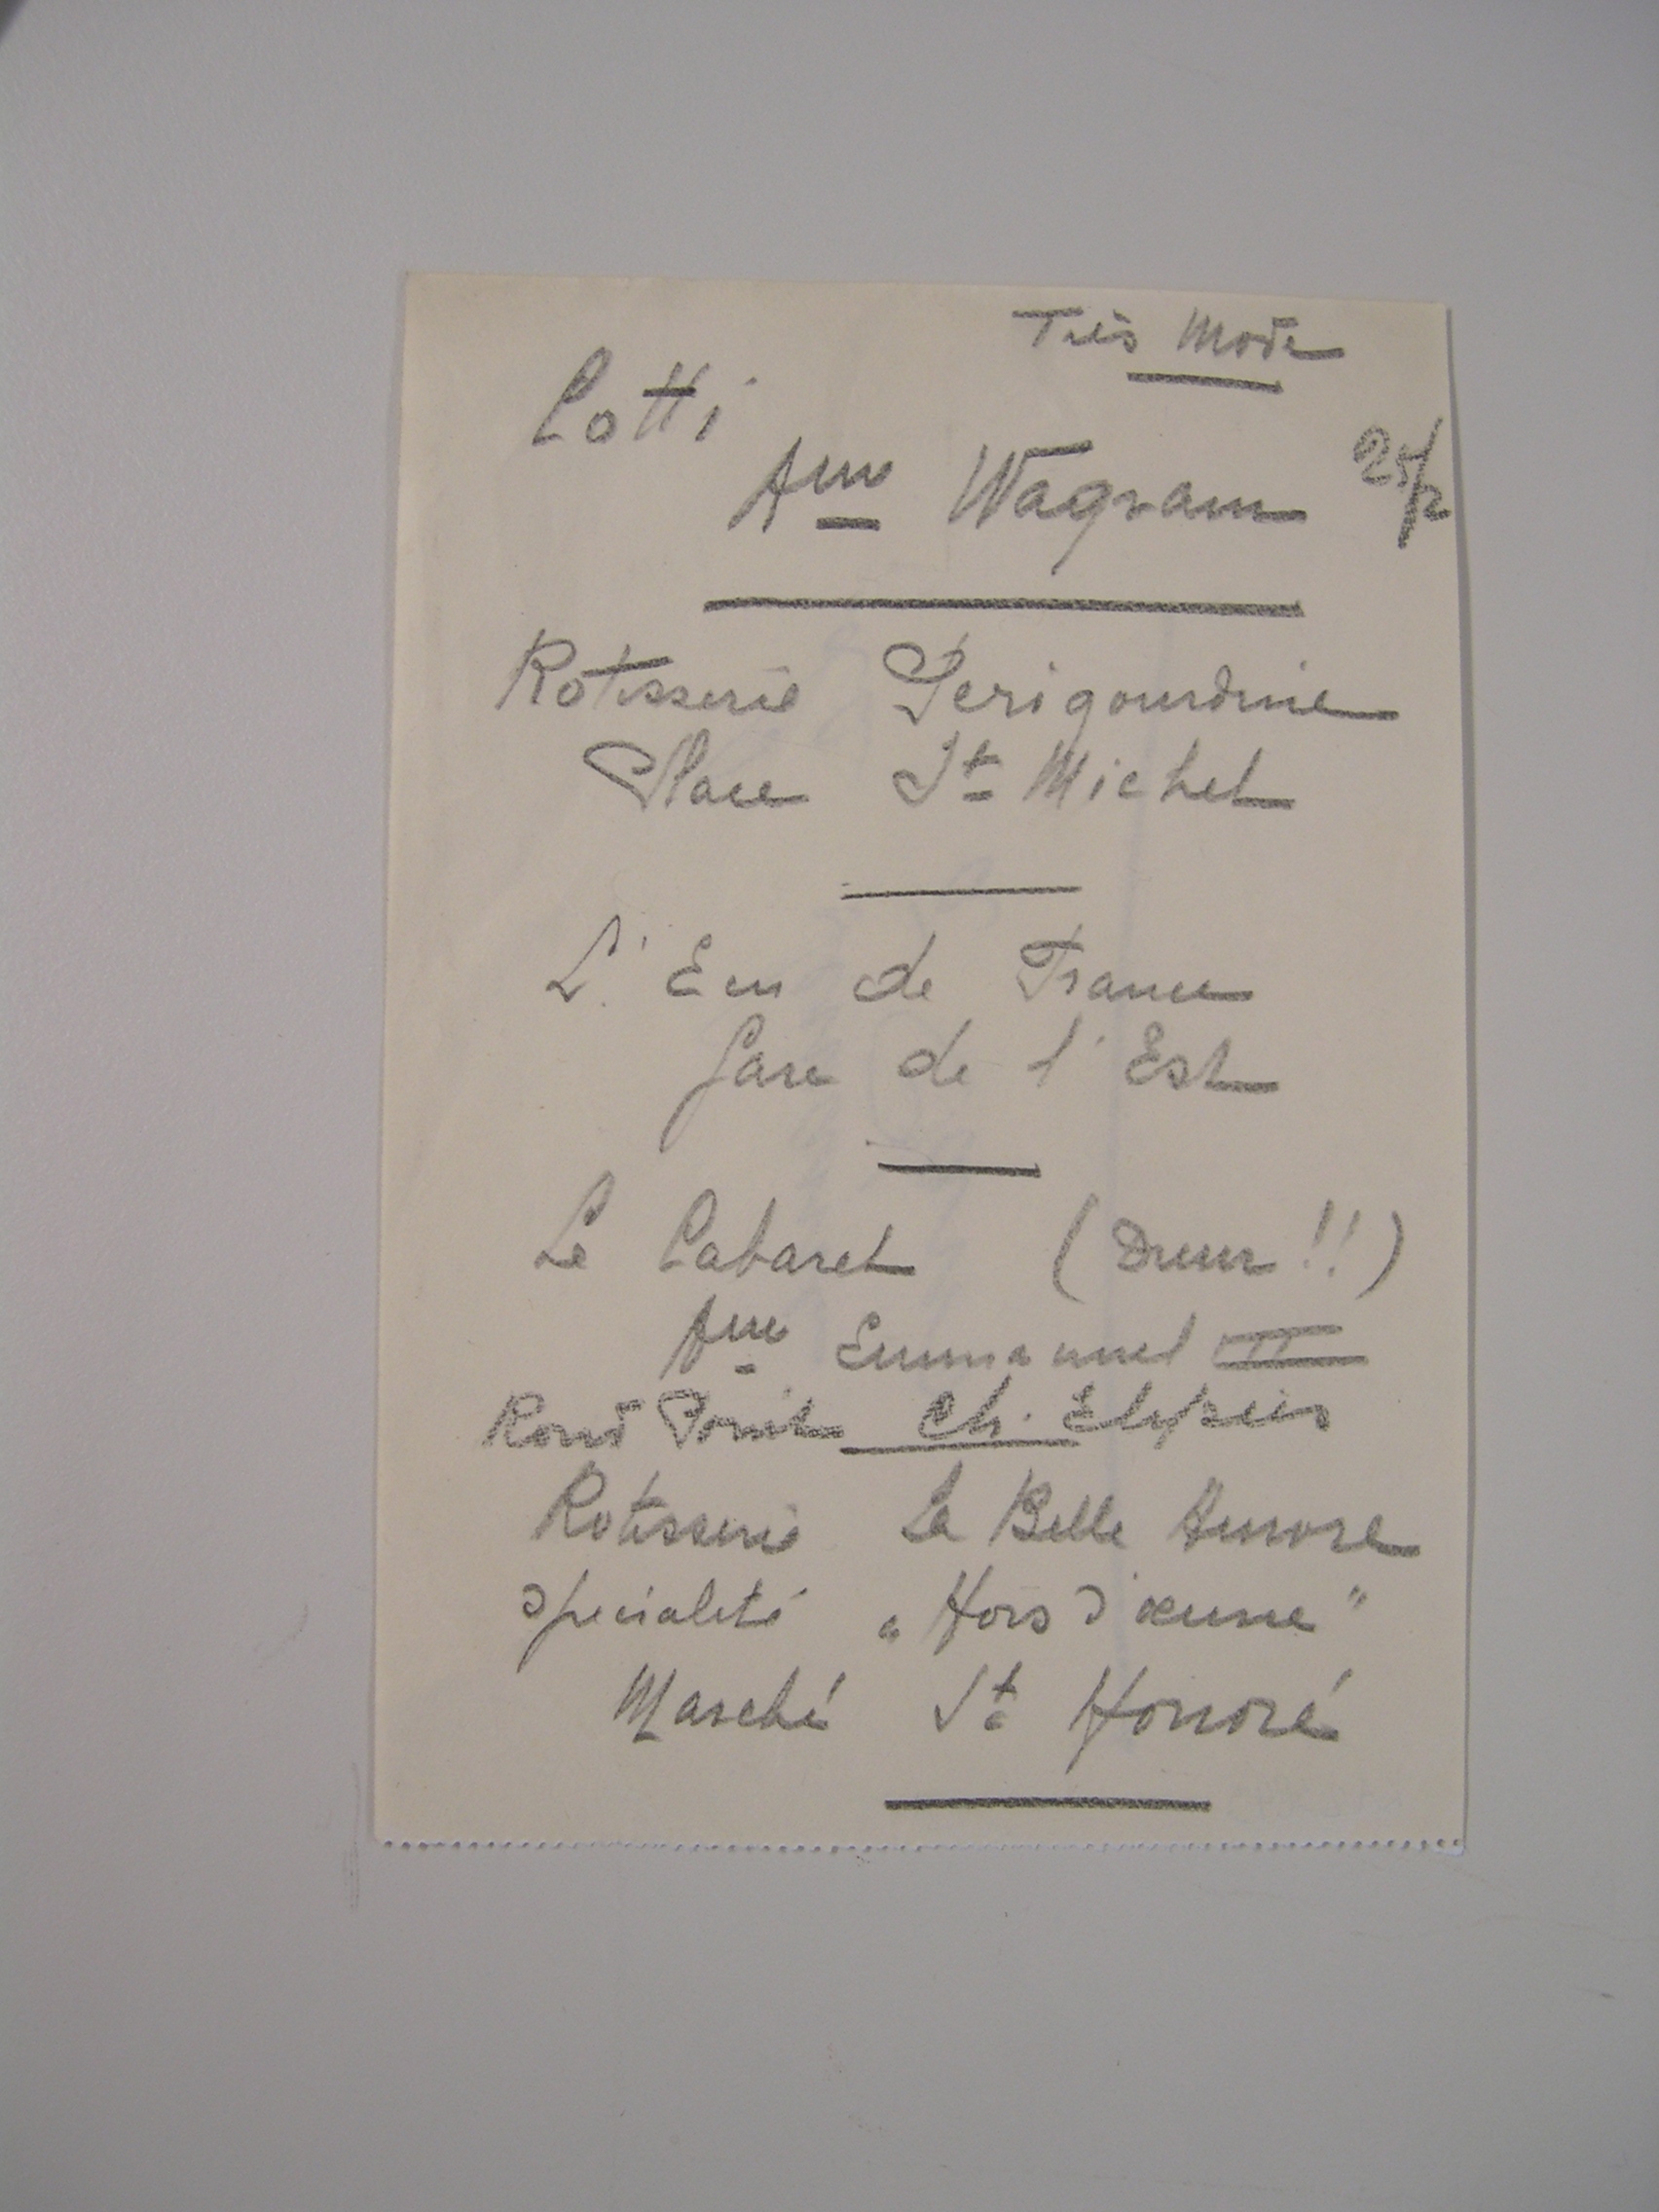 Très Mode
Cotti
Ave Wagram 25/2
Rotisserie Perigourdine
Place St Michel
L'Ecu de France
Gare de l'Est
Le Cabaret ( !!)
Ave Emmanuel III
Rond Point Ch. Elysées
Rotisserie La Belle Aurore
spécialité „Hors d'œuvre"
Marché St Honoré